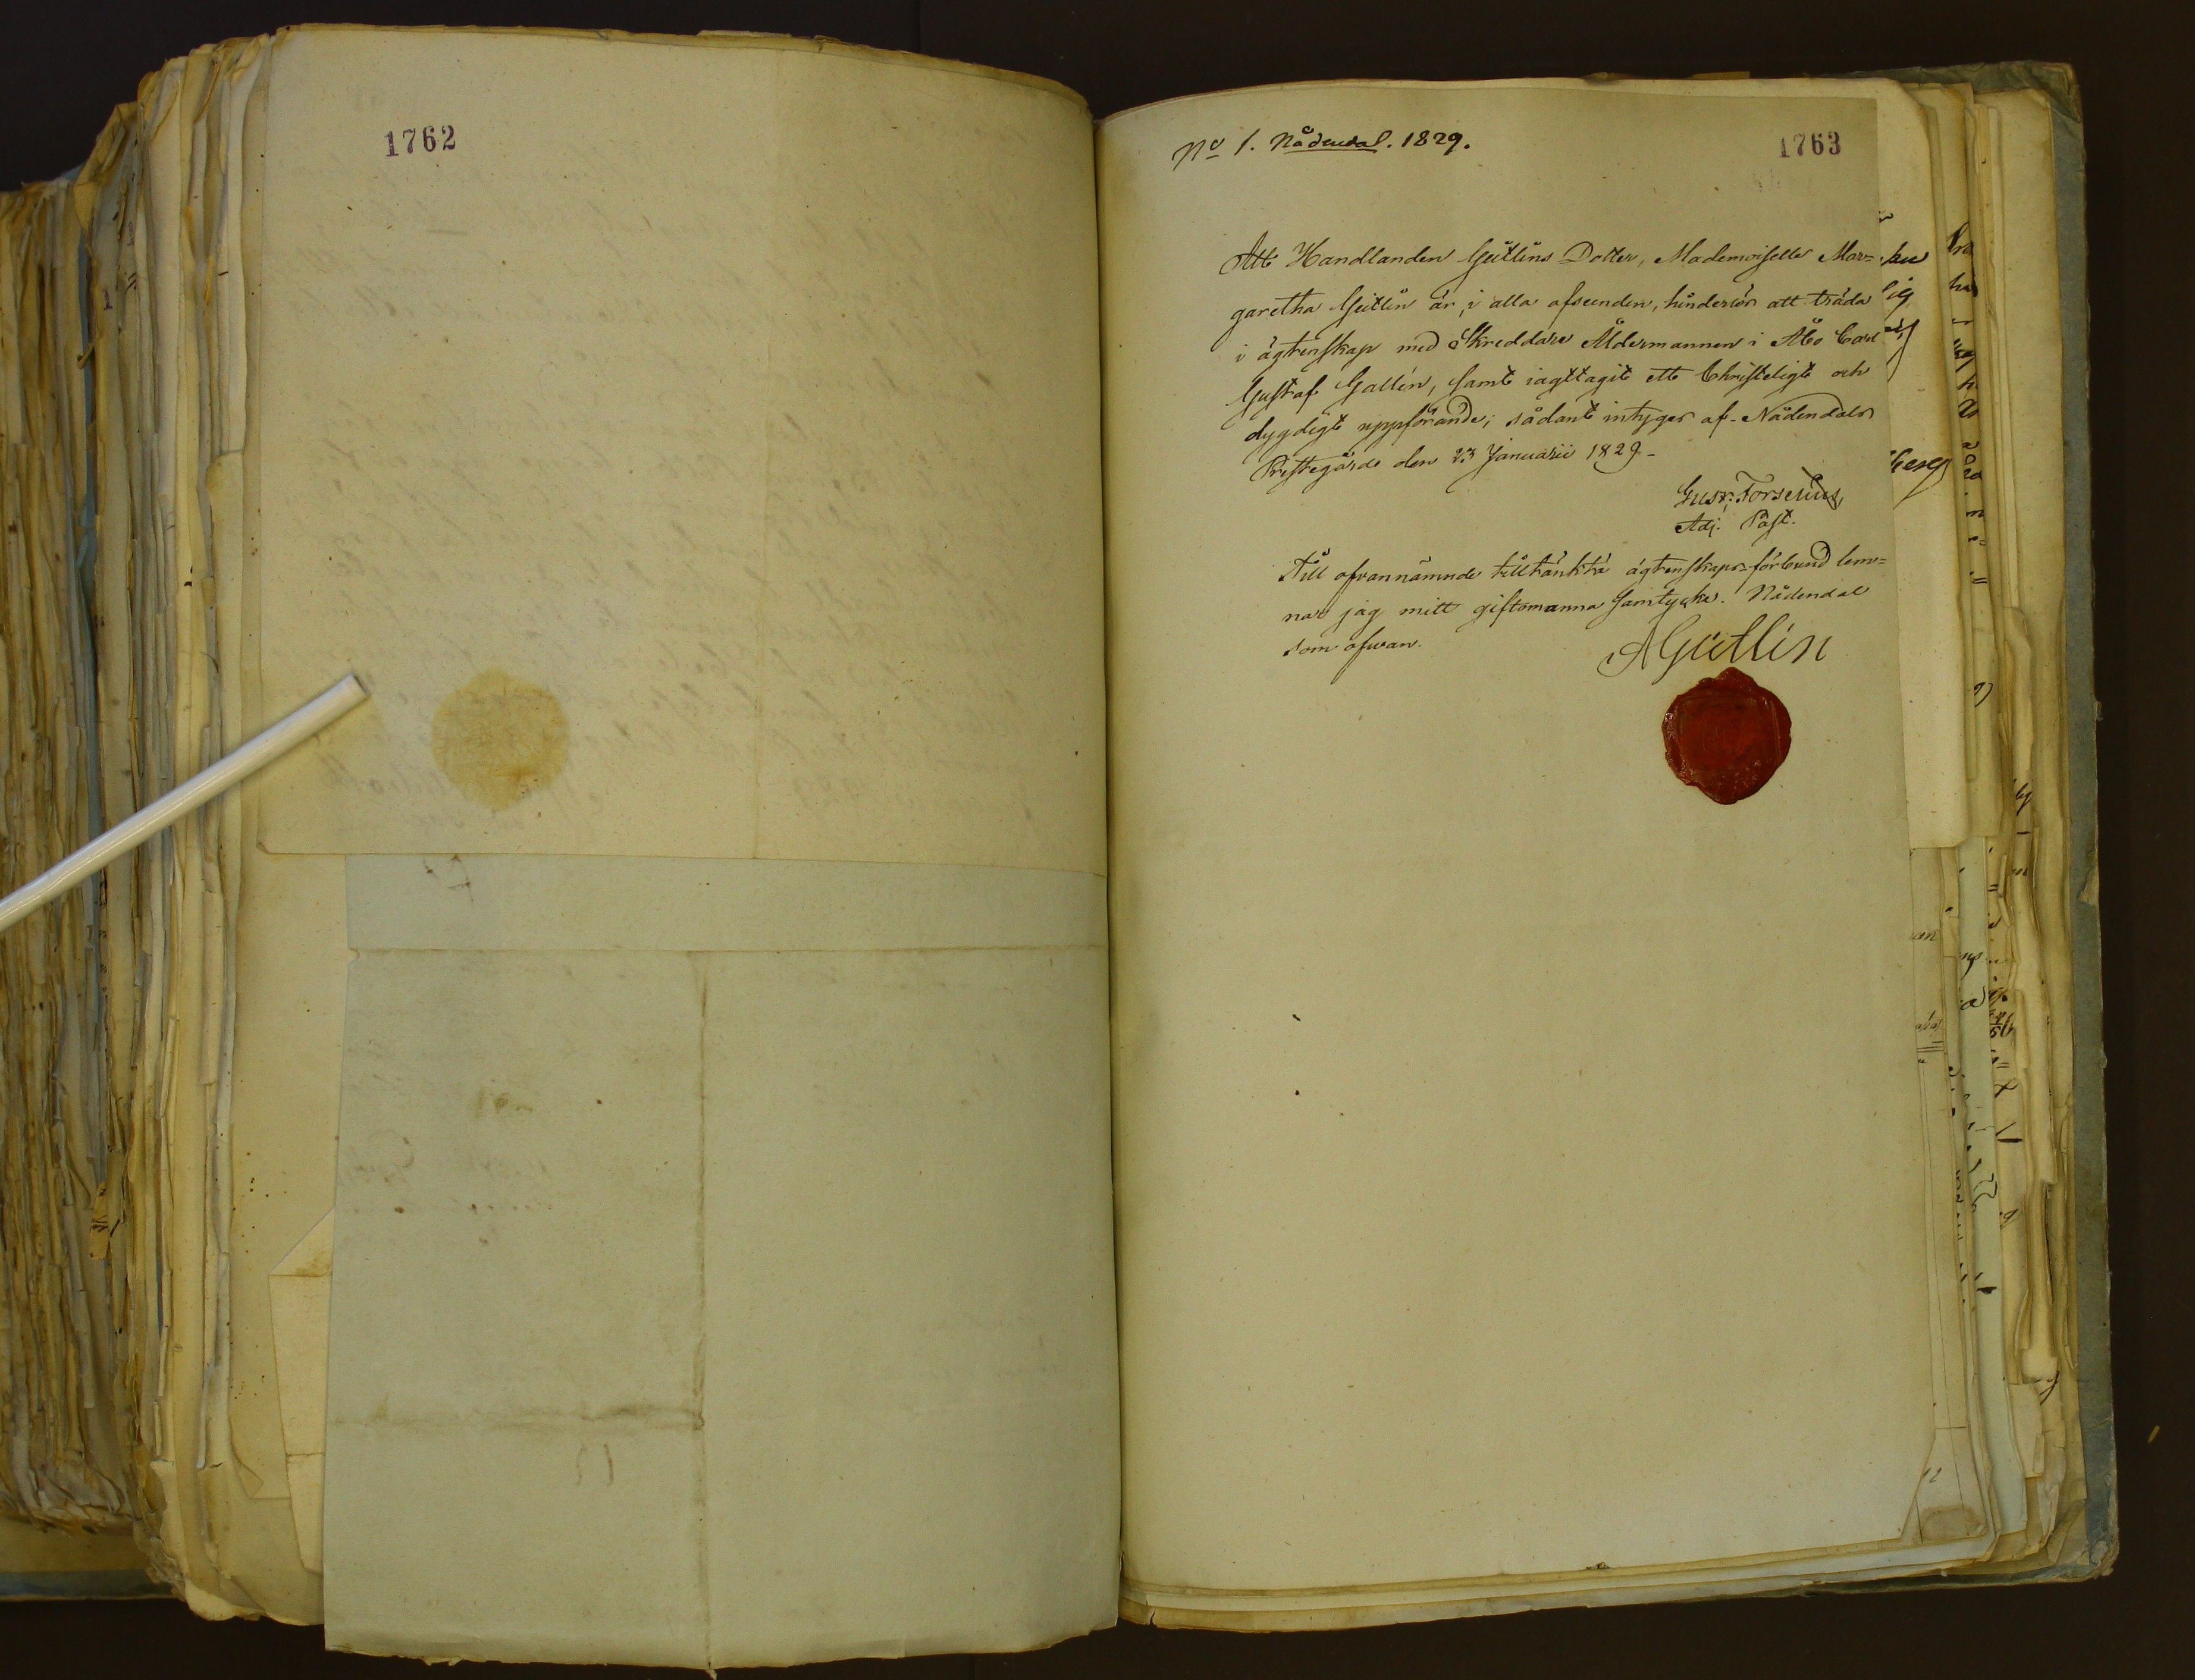 1762
No 1. Nådendal. 1829.
1763
Att Handlanden Gütlins Dotter, Mademoiselle Mar=
garetha Gütlin är, i alla afseenden, hinderlös att träda
i ägtenskap med Skreddare Åldermannen i Åbo Carl
Gustaf Gallén, samt iagttagit ett Christeligt och
dygdigt uppförande; sådant intygas af Nådendals
Prestegård den 23 Januarii 1829.
Gust: Forselius,
Adj. Past.
Till ofvannämnde tilltänkta ägtenskaps-förbund lem=
nar jag mitt giftomanna samtycke. Nådendal
som ofvan.
A Gütlin